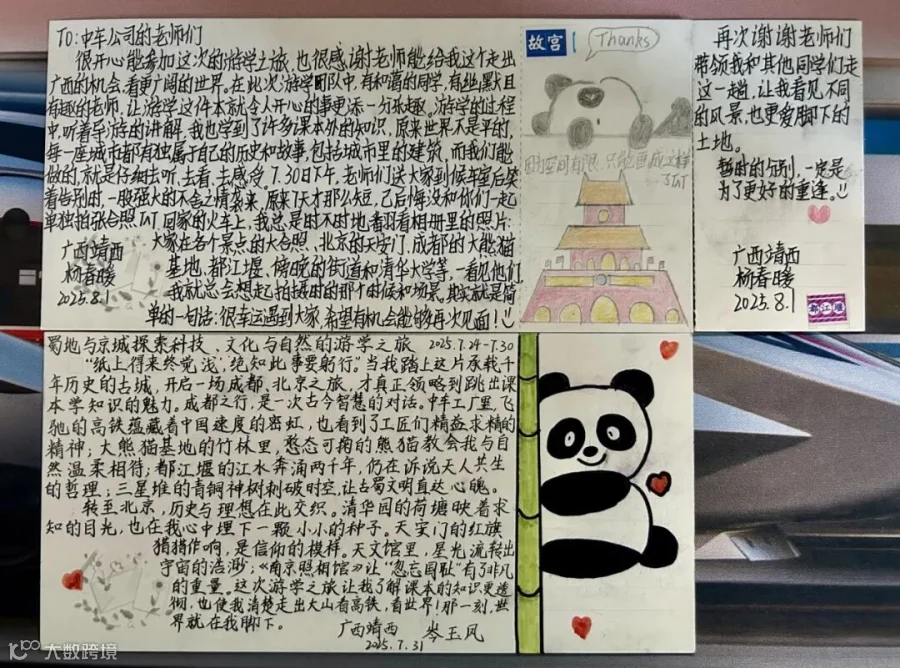 TO:中车公司的老师们
很开心能参加这次的游学之旅,也很感谢老师能给我这个走出
广西的机会,看更广阔的世界。在此次游学团队中,有和蔼的同学,有幽默且
有趣的老师,让游学这件本就令人开心的事更添一分乐趣。游学的过程
中,听着导游的讲解,我也学到了许多课本外的知识,原来世界不是平的,
每一座城市都有独属于自己的历史和故事,包括城市里的建筑,而我们能
做的,就是仔细去听,去看,去感受。7.30日下午,老师们送大家到候车室后笑
着告别时,一股强大的不舍之情袭来,原来7天才那么短,已后悔没和你们一起
单独拍张合照TAT 回家的火车上,我总是时不时地翻看相册里的照片:
大家在各个景点的大合照、北京的天安门、成都的大熊猫
基地、都江堰、傍晚的街道和清华大学等,一看见他们,
我就总会想起拍摄时的那个时候和场景。其实就是简
单的一句话:很幸运遇到大家,希望有机会能够再次见面!
广西靖西
杨春暖
2025.8.1
故宫
Thanks
因为空间有限,只能画成这样
了TAT
再次谢谢老师们
带领我和其他同学们走
这一趟,让我看见不同
的风景,也更爱脚下的
土地。
暂时的分别,一定是
为了更好的重逢。
广西靖西
杨春暖
2025.8.1
都江堰
蜀地与京城探索科技、文化与自然的游学之旅 2025.7.24-7.30
“纸上得来终觉浅,绝知此事要躬行”当我踏上这片承载千
年历史的古城,开启一场成都、北京之旅,才真正领略到跳出课
本学知识的魅力。成都之行,是一次古今智慧的对话。中车工厂里,飞
驰的高铁蕴藏着中国速度的密码,也看到了工匠们精益求精的
精神;大熊猫基地的竹林里,憨态可掬的熊猫教会我与自
然温柔相待;都江堰的江水奔涌两千年,仍在诉说天人共生
的哲理;三星堆的青铜神树刺破时空,让古蜀文明直达心魄。
转至北京,历史与理想在此交织。清华园的荷塘映着求
知的目光,也在我心中埋下一颗小小的种子。天安门的红旗
猎猎作响,是信仰的模样。天文馆里,星光流转出
宇宙的浩渺;《南京照相馆》让“勿忘国耻”有了非凡
的重量。这次游学之旅让我了解课本的知识更透
彻,也使我清楚走出大山有高铁,看世界!那一刻,世
界就在我脚下。
广西靖西 岑玉凤
2025.7.31
大数跨境